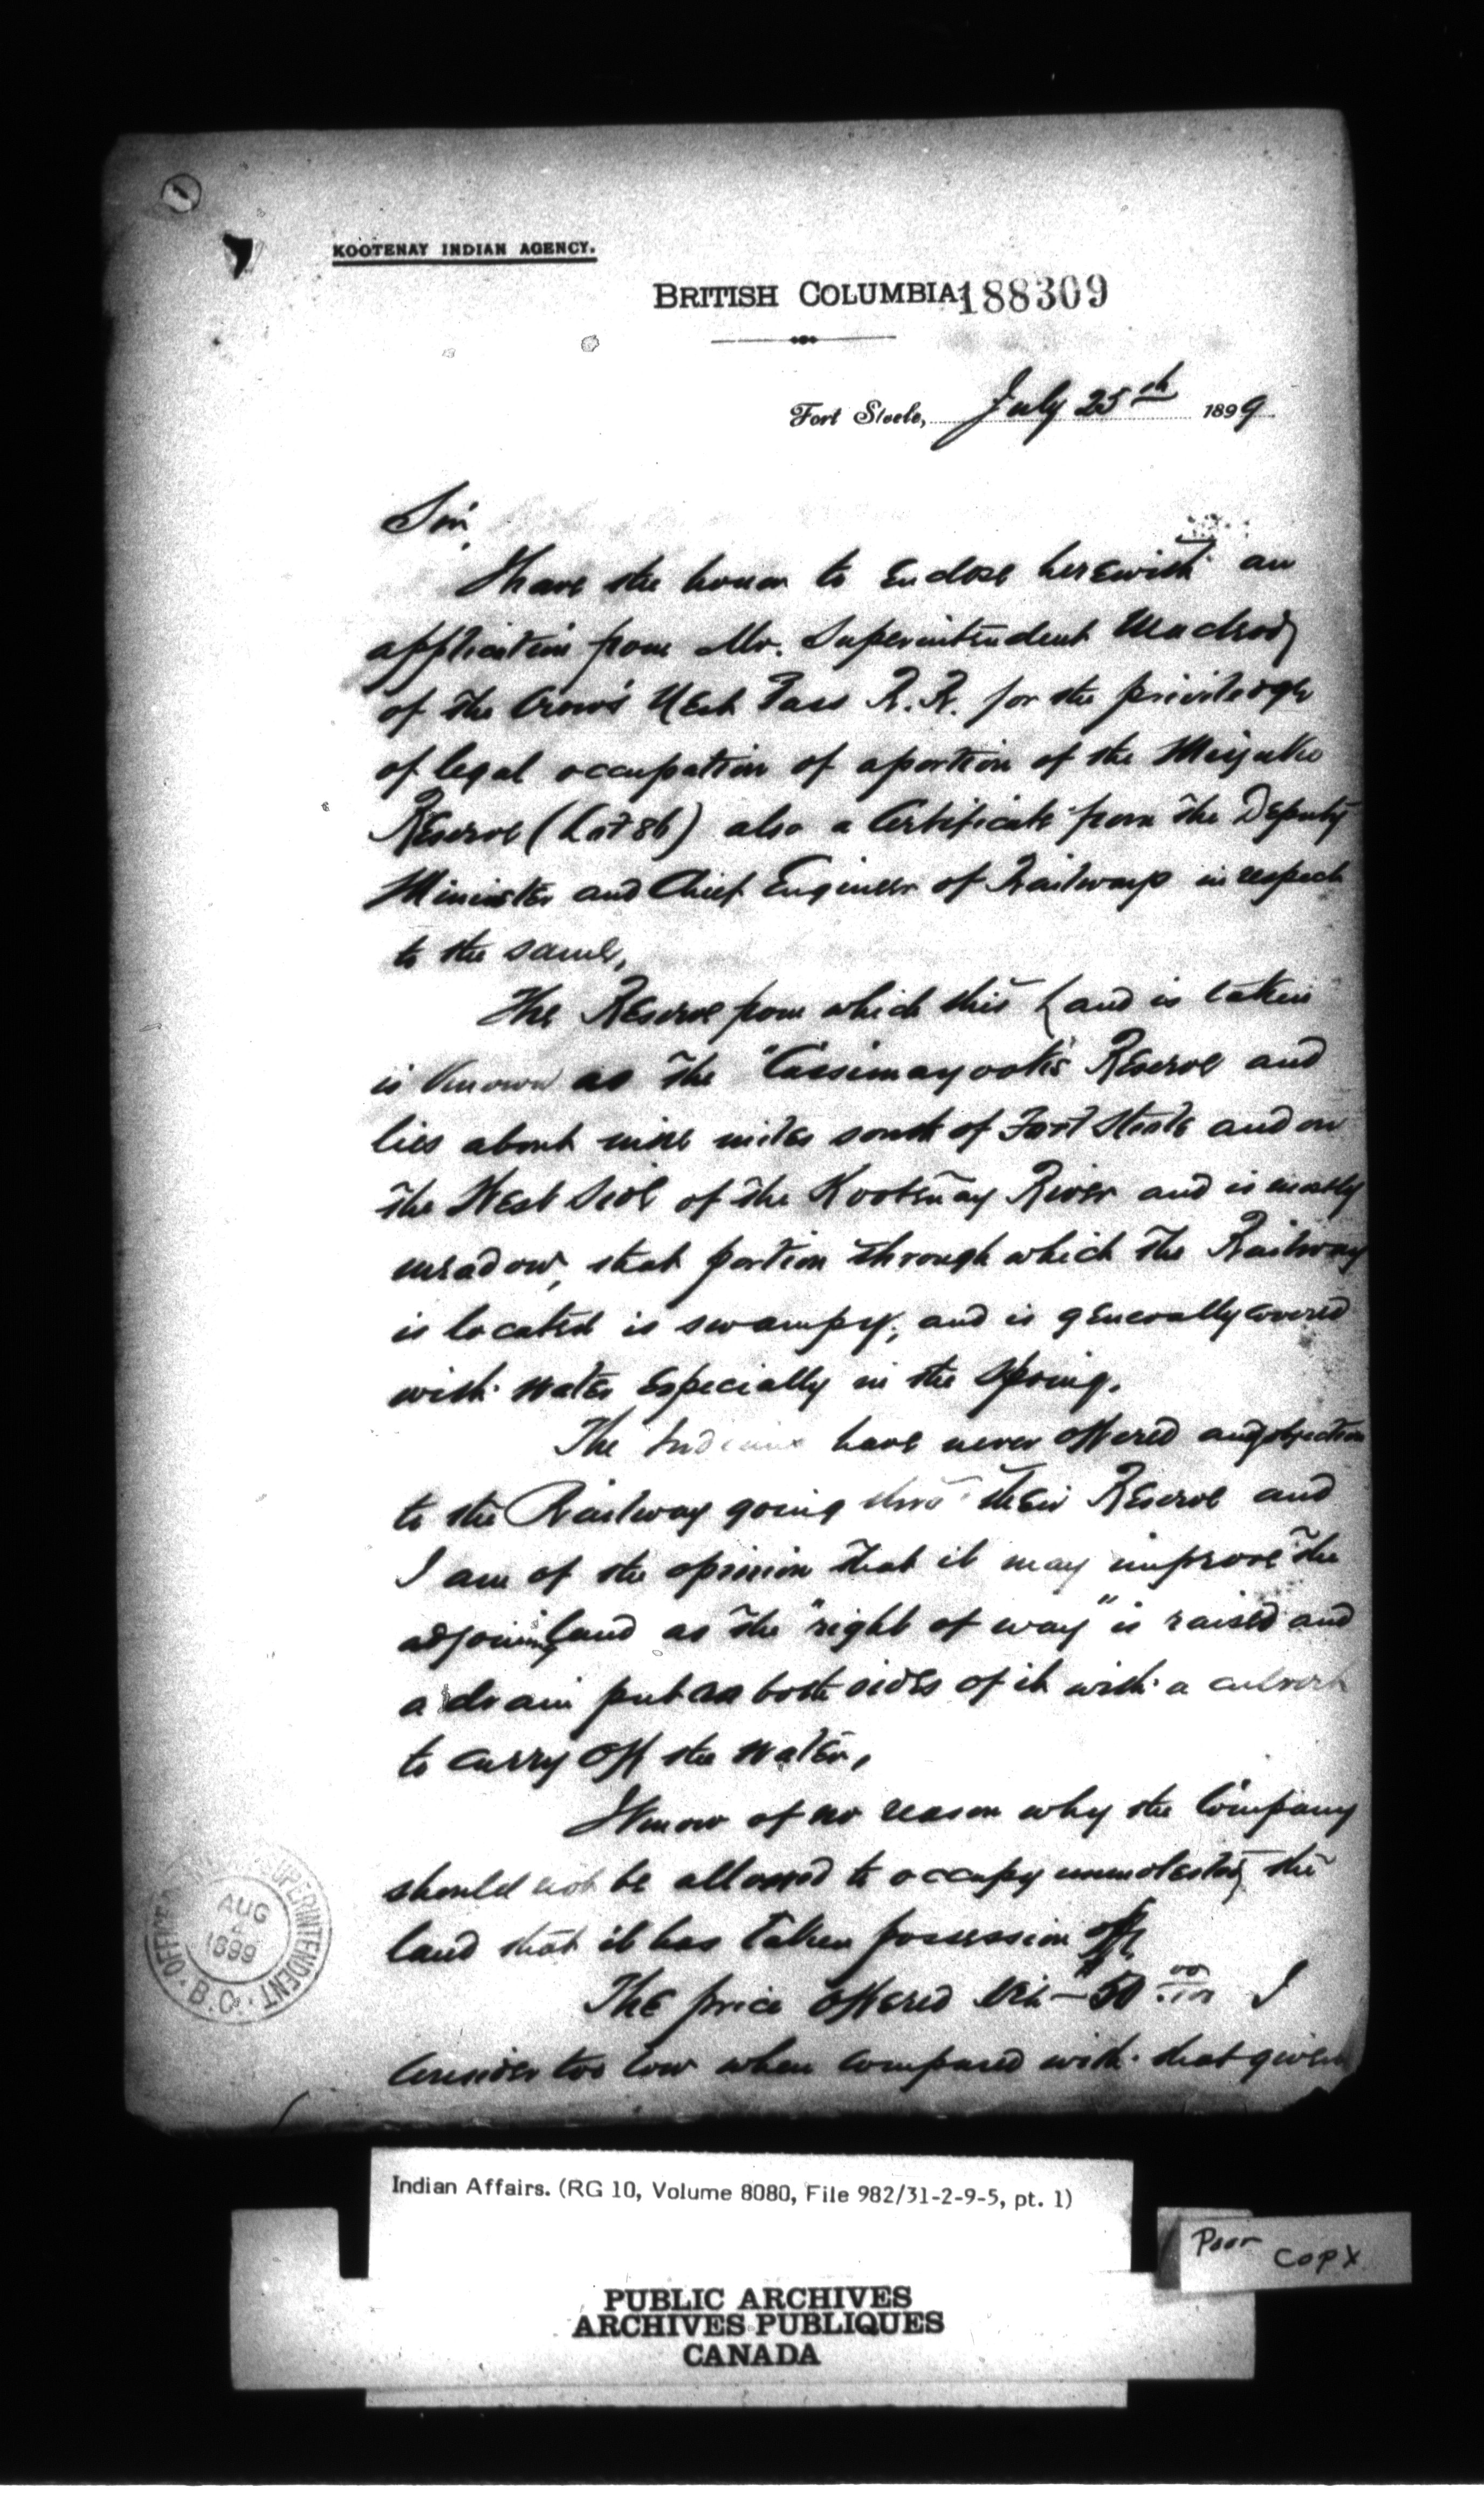 KOOTENAY INDIAN AGENCY.
BRITISH COLUMBIA
188309
Fort Steele, July 25th 1899
Sir,
I have the honor to enclose herewith an
application from Mr. Superintendent
of the Crow's Nest Pass R.R. for the priviledge
of legal occupation of a portion of the
Reserve (Lot 86) also a Certificate from the Deputy
Minister and Chief Engineer of Railways in respect
to the same,
The Reserve from which this Land is taken
is known as the "Cassimayooks Reserve and
lies about nine miles south of Fort Steele and on
the West Side of the Kootenay River and is mostly
meadow, that portion through which the Railway
is located is swampy, and is generally covered
with water especially in the Spring.
The Indians have never offered any objection
to the Railway going thro' their Reserve and
I am of the opinion that it may improve the
adjoining land as the "right of way" is raised and
a drain put on both sides of it with a culvert
to carry off the water,
I know of no reason why the Company
should not be allowed to occupy unmolested, the
land that it has taken possession off,
The price offered Viz - 50 00 I
consider too low when compared with that given
OFFICE SUPERINTENDENT B.C.
AUG
1899
Indian Affairs. (RG 10, Volume 8080, File 982/31-2-9-5, pt. 1)
Poor Copy
PUBLIC ARCHIVES
ARCHIVES PUBLIQUES
CANADA